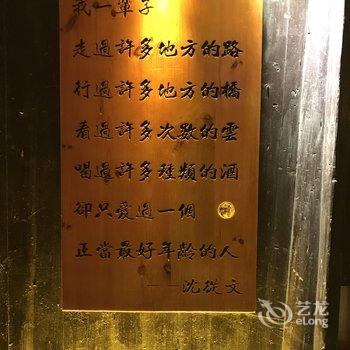 我一輩子
走過許多地方的路
行過許多地方的橋
看過許多次數的雲
喝過許多種類的酒
卻只愛過一個
正當最好年齡的人
——沈從文
艺龙
eLong